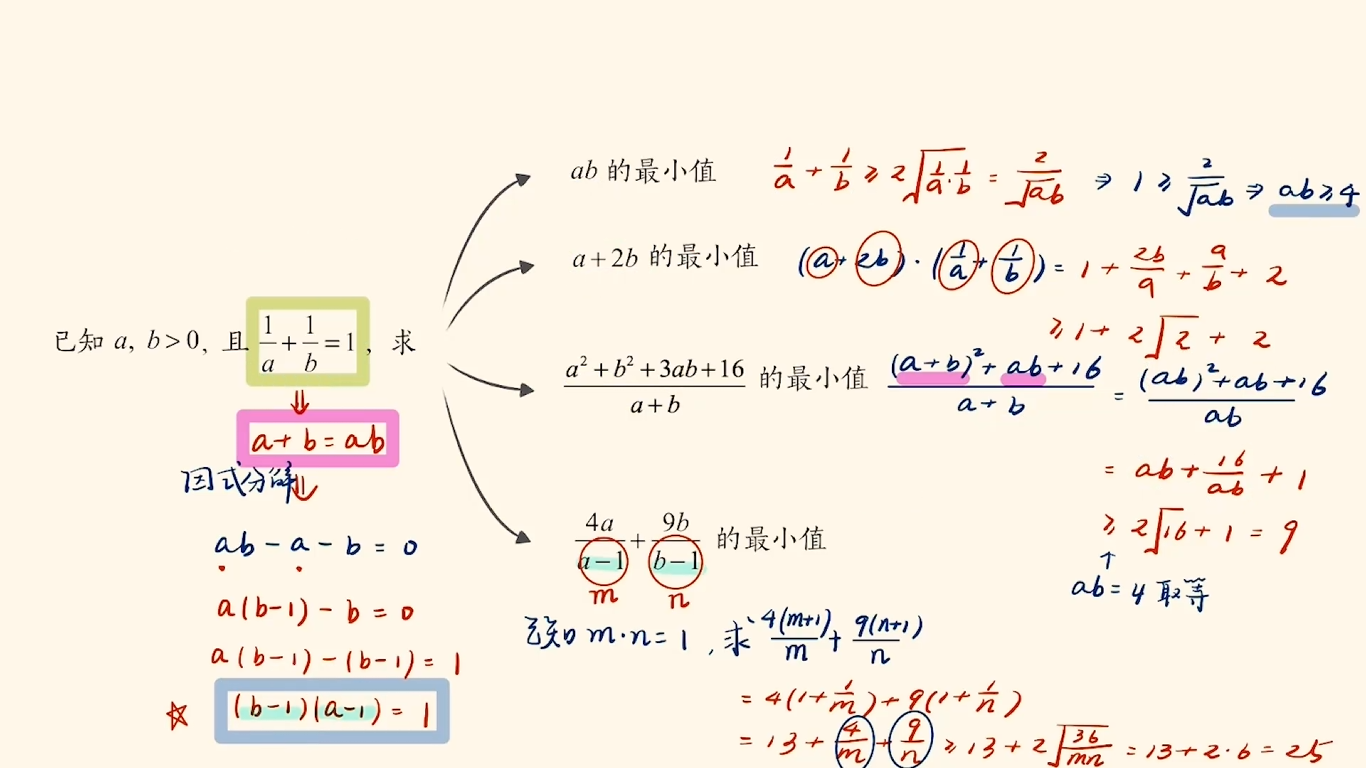 已知 a, b>0, 且 1/a+1/b=1, 求
⇓
a+b=ab
因式分解⇓
ab-a-b=0
a(b-1)-b=0
a(b-1)-(b-1)=1
☆ (b-1)(a-1)=1
ab 的最小值 1/a+1/b≥2√(1/a·1/b)=2/√ab ⇒ 1≥2/√ab ⇒ ab≥4
a+2b 的最小值 (a+2b)·(1/a+1/b)=1+2b/a+a/b+2
≥1+2√2+2
(a²+b²+3ab+16)/(a+b) 的最小值 ((a+b)²+ab+16)/(a+b) = ((ab)²+ab+16)/ab
= ab+16/ab+1
≥2√16+1=9
↑
ab=4 取等
4a/(a-1)+9b/(b-1) 的最小值
m n
已知 m·n=1, 求 4(m+1)/m+9(n+1)/n
=4(1+1/m)+9(1+1/n)
=13+4/m+9/n≥13+2√(36/mn)=13+2·6=25